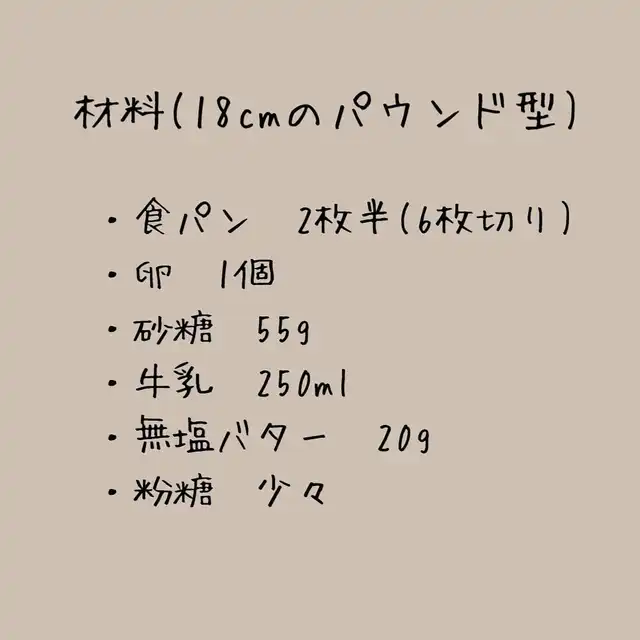 材料(18cmのパウンド型)
・食パン 2枚半(6枚切り)
・卵 1個
・砂糖 55g
・牛乳 250ml
・無塩バター 20g
・粉糖 少々